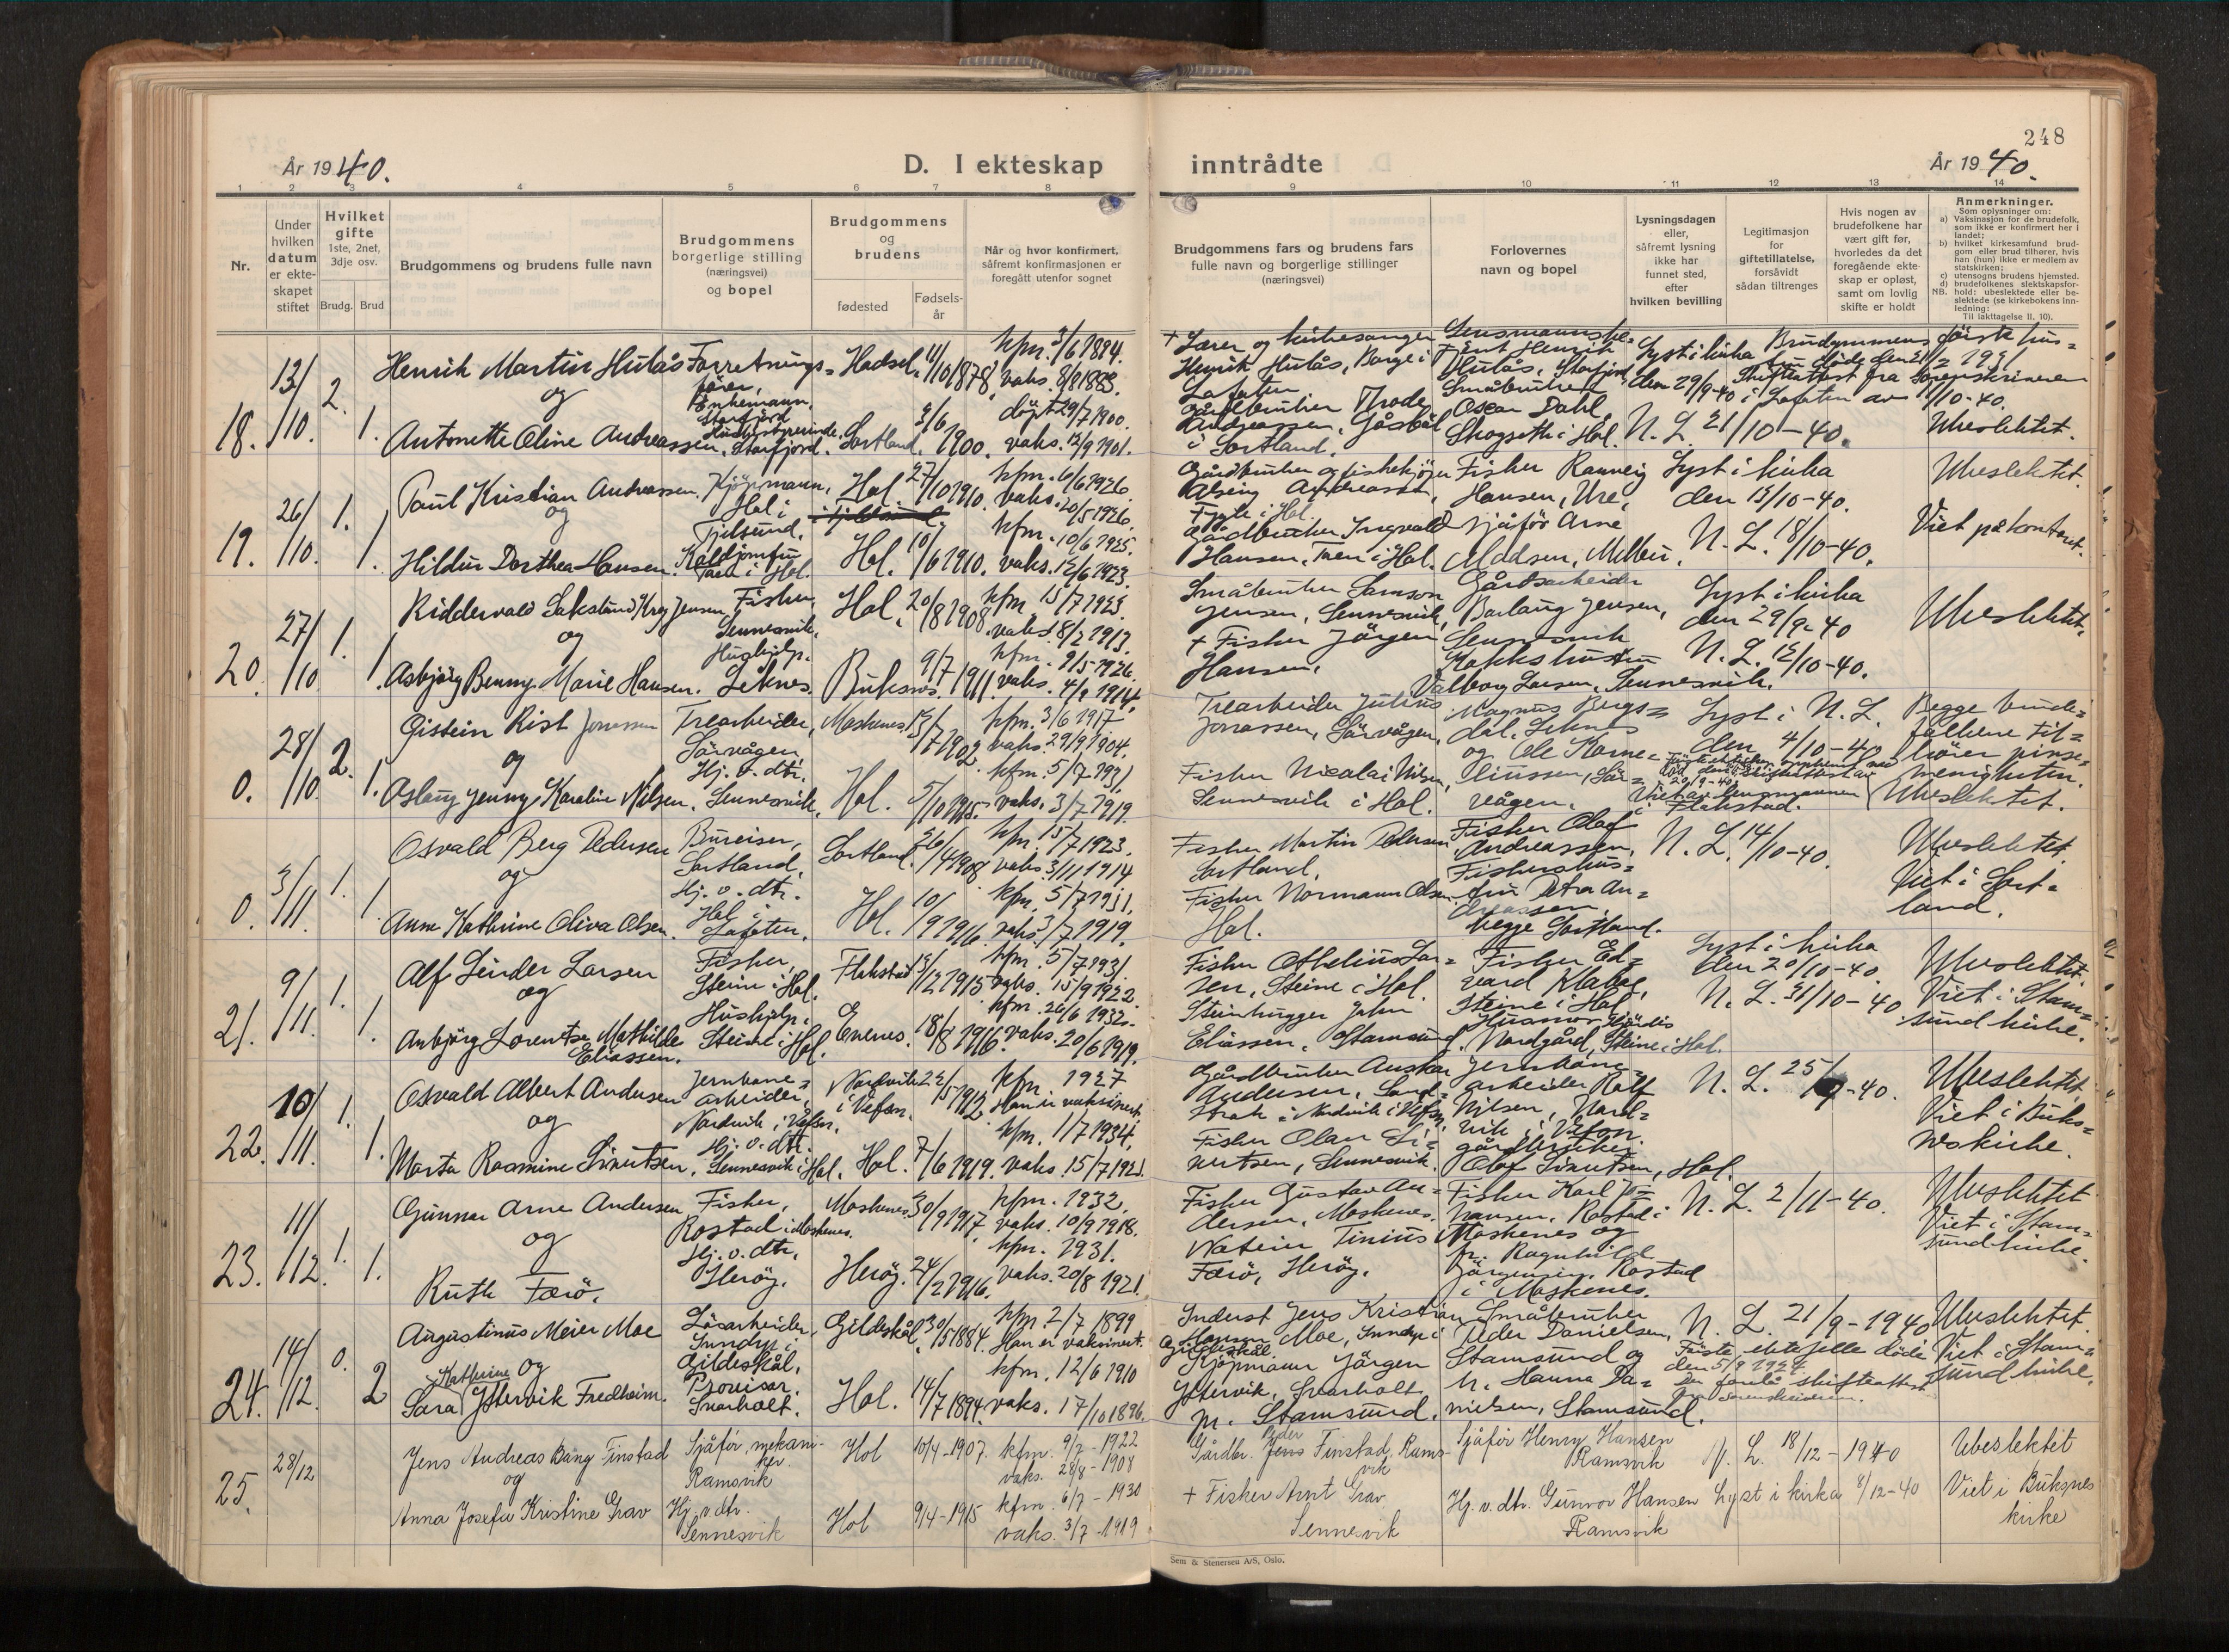 248
År 1940.
D. I ekteskap inntrådte
År 1940.
1 2 3 4 5 6 7 8 9 10 11 12 13 14
Nr.
Under hvilken datum er ekteskapet stiftet
Hvilket gifte
1ste, 2net, 3dje osv.
Brudg. Brud
Brudgommens og brudens fulle navn
Brudgommens borgerlige stilling (næringsvei) og bopel
Brudgommens og brudens
fødested
Fødselsår
Når og hvor konfirmert, såfremt konfirmasjonen er foregått utenfor sognet
Brudgommens fars og brudens fars fulle navn og borgerlige stillinger (næringsvei)
Forlovernes navn og bopel
Lysningsdagen eller, såfremt lysning ikke har funnet sted, efter hvilken bevilling
Legitimasjon for giftetillatelse, forsåvidt sådan tiltrenges
Hvis nogen av brudefolkene har vært gift før, hvorledes da det foregående ekteskap er opløst, samt om lovlig skifte er holdt
Anmerkninger.
Som oplysninger om:
a) Vaksinasjon for de brudefolk, som ikke er konfirmert her i landet;
b) hvilket kirkesamfund brudgom eller brud tilhører, hvis han (hun) ikke er medlem av statskirken;
c) utensogns brudens hjemsted.
d) brudefolkenes slektskapsforhold: ubeslektede eller beslektede (se kirkebokens innledning:
NB. Til iakttagelse II, 10).
18. 13/10. 2. 1.
Henrik Martin Hulås
og
Antonette Oline Andreassen.
Forretningsfører, Enkemann, Storfjord
Husbestyrerinde, Storfjord.
Hadsel. 11/10 1878,
Sortland. 9/6 1900.
kfm. 3/6 1894.
vaks. 8/8 1883.
døpt 29/7 1900.
vaks. 12/9 1901.
+ Lærer og kirkesanger
Henrik Hulås, Borge i
Lofoten
Gårdbruker Thode
Andreassen, Gåsbøl
i Sortland.
Hulås, Storfjord,
Småbruker
Oscar Dahl,
Skogseth i Hol.
Lyst i kirka
den 29/9-40
N. L. 21/10-40.
Brudgommens første hustru døde den 21/2 1931
Skifteattest fra Sorenskriveren
i Lofoten av 1/10-40.
Ubeslektet.
19. 26/10. 1. 1.
Paul Kristian Andreassen.
og
Hildur Dorthea Hansen.
Kjøpmann,
Hol i
Tjelsund.
Tæn i Hol.
Hol. 27/10 1910.
Hol. 10/6 1910.
kfm. 6/6 1926.
vaks. 20/5 1926.
kfm. 10/6 1925.
vaks. 12/6 1923.
Gårdbruker og fiskekjøper
Andreassen,
Gårdbruker Ingvald
Hansen, Tæn i Hol.
Fisker Ranveig
Hansen, Ure,
Sjåfør Arne
Madsen, Melbu.
Lyst i kirka
den 13/10-40.
N. L. 18/10-40.
Ubeslektet.
Viet på kontoret.
20. 27/10 1. 1.
Riddervald Sakstind Krey Jensen
og
Asbjørg Benny Marie Hansen.
Fisker,
Sennesvik.
Hushjelp.
Leknes.
Hol. 20/8 1908.
Buksnes. 9/7 1911.
kfm. 15/7 1923.
vaks. 8/2 1913.
kfm. 9/5 1926.
vaks. 4/9 1914.
Småbruker Samson
Jensen, Sennesvik,
+ Fisker Jørgen
Hansen.
Gårdsarbeider
Borlaug Jensen,
Sennesvik
Kokkshustru
Valborg Larsen, Sennesvik.
Lyst i kirka
den 29/9-40
N. L. 12/10-40.
Ubeslektet.
0. 28/10. 2. 1.
Gistein Rist Jonassen
og
Aslaug Jenny Karoline Nilsen.
Trearbeider,
Sørvågen,
Hj. v. dtr.
Sennesvik.
Moskenes. 13/7 1902
Hol. 5/10 1915.
kfm. 3/6 1917
vaks. 29/9 1904.
kfm. 5/7 1931.
vaks. 3/7 1919.
Trearbeider Julius
Jonassen, Sørvågen,
Fisker Nicolai Nilsen,
Sennesvik i Hol.
Magnus Bergs=
dal, Leknes
og Ole Korne=
liussen, Sør=
vågen.
Lyst i N. L.
den 4/10-40
Viet av lensmannen
i Flakstad.
Begge brude=
folkene til=
hører pinse=
menigheten.
Ubeslektet.
0. 3/11. 1. 1.
Osvald Berg Pedersen
og
Anna Kathrine Oliva Olsen.
Bureiser,
Sortland.
Hj. v. dtr.
Hol i
Lofoten.
Sortland. 26/4 1908
Hol. 10/9 1916.
kfm. 15/7 1923.
vaks. 3/11 1914
kfm. 5/7 1931.
vaks. 3/7 1919.
Fisker Martin Pedersen
Sortland.
Fisker Normann Olsen
Hol.
Fisker Olaf
Andreassen,
Fiskershus=
tru Petra An=
dreassen.
begge Sortland.
N. L. 14/10-40.
Ubeslektet.
Viet i Sort=
land.
21. 9/11. 1. 1.
Alf Linder Larsen
og
Anbjørg Lorentse Mathilde
Eliassen.
Fisker,
Steine i Hol.
Hushjelp.
Steine i Hol.
Flakstad 13/12 1915
Evenes. 18/8 1916.
kfm. 5/7 1931.
vaks. 15/9 1922.
kfm. 26/6 1932.
vaks. 20/6 1919.
Fisker Othelius Lar=
sen, Steine i Hol.
Steinhugger John
Eliassen, Stamsund.
Fisker Ed=
vard Klabo,
Steine i Hol
Husmor Hjørdis
Nordgård, Steine i Hol.
Lyst i kirka
den 20/10-40.
N. L. 31/10-40
Ubeslektet.
Viet i Stam=
sund kirke.
22. 10/11. 1. 1.
Osvald Albert Andersen
og
Marta Rasmine Sivertsen.
Jernbane=
arbeider,
Nordvik i Vefsn.
Hj. v. dtr.
Sennesvik i Hol.
Nordvik i Vefsn. 22/5 1912
Hol. 7/6 1919.
kfm. 1927
Han er vaksinert.
kfm. 1/7 1934.
vaks. 15/7 1921.
Gårdbruker Anskar
Andersen,
Fisker Olav Si=
vertsen, Sennesvik.
Jernbane=
arbeider Rolf
Nilsen, Nord=
vik i Vefsn.
gårdbruker
Olaf Sivertsen, Hol.
N. L. 25/9-40.
Ubeslektet.
Viet i Buks=
neskirke.
23. 11/12. 1. 1.
Gunnar Arne Andersen
og
Ruth Færø.
Fisker,
Rostad i Moskenes.
Hj. v. dtr.
Herøy.
Moskenes. 30/9 1917,
Herøy. 24/2 1916.
kfm. 1932.
vaks. 10/9 1918.
kfm. 1931.
vaks. 20/8 1921.
Fisker Gustav An=
dersen, Moskenes.
Tinius
Færø, Herøy.
Fisker Karl Jo=
hansen, Rostad i
Moskenes og
fr. Ragnhild
Jørgensen, Rostad
i Moskenes.
N. L. 2/11-40.
Ubeslektet
Viet i Stam=
sund kirke.
24. 14/12. 0. 2
Augustinus Meier Moe
og
Sara Kathrine Yttervik Fredheim.
Løsarbeider,
Inndyr i
Gildeskål.
Provisor.
Svarholt.
Gildeskål. 30/5 1884.
Hol. 14/7 1894.
kfm. 2/7 1899.
Han er vaksinert.
kfm. 12/6 1910
vaks. 17/10 1896.
Inderst Jens Kristian
Hansen Moe, Inndyr i
Gildeskål.
Kjøpmann Jørgen
Yttervik, Svarholt
pr. Stamsund.
Småbruker
Peder Danielsen,
Stamsund og
fr. Hanna Da=
nielsen, Stamsund.
N. L. 21/9-1940
Første ektefelle døde
den 5/9 1924
Det forelå skifteattest
fra sorenskriveren.
Ubeslektet.
Viet i Stam=
sund kirke.
25. 28/12
Jens Andreas Bang Finstad
og
Anna Josefa Kristine Grav
Sjåfør, mekani-
ker.
Ramsvik
Hj. v. dtr.
Sennesvik
Hol 10/4-1907.
Hol 9/4-1915
kfm. 9/7-1922
vaks. 28/8-1908
kfm. 6/7-1930
vaks. 3/7-1919
Gårdbr. Jens Peder Finstad, Rams-
vik
+ Fisker Arnt Grav
Sennesvik
Sjåfør Henry Hansen
Ramsvik
Hj. v. dtr. Gunvor Hansen
Ramsvik
N. L. 18/12-1940
Lyst i kirka 8/12-40
Ubeslektet
Viet i Buksnes
kirke
Sem & Stenersen A/S, Oslo.